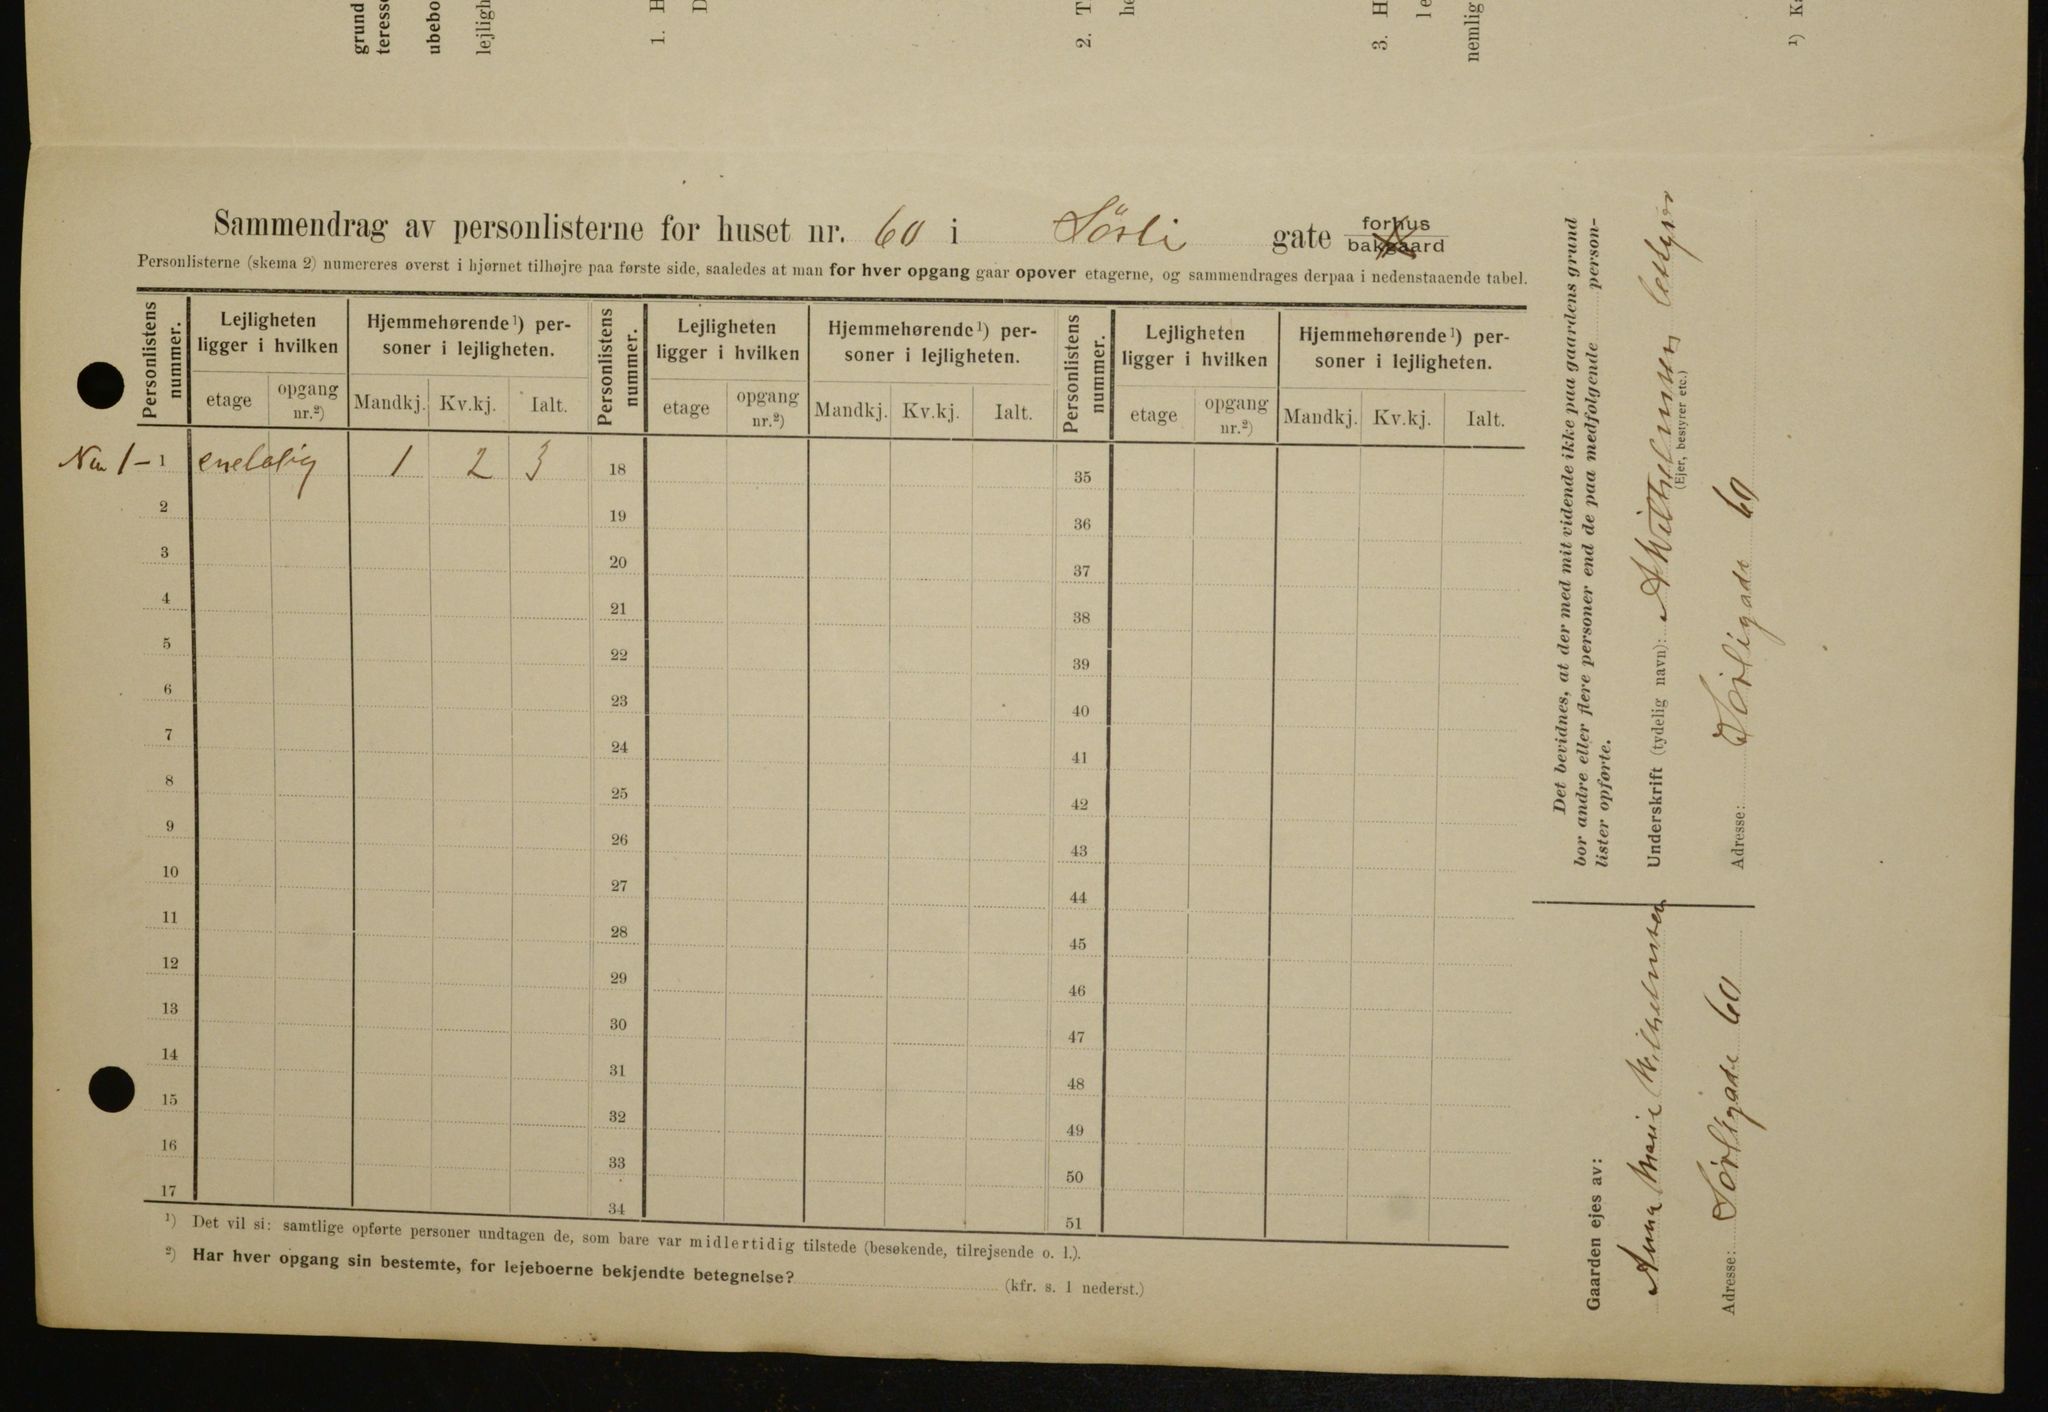 grund
teresse
ubebo
lejligh
1. H
D
2. T
he
3. H
le
nemlig
¹) Ka
Sammendrag av personlisterne for huset nr. 60 i Sörli gate forhus
bakgaard
Personlisterne (skema 2) numereres øverst i hjørnet tilhøjre paa første side, saaledes at man for hver opgang gaar opover etagerne, og sammendrages derpaa i nedenstaaende tabel.
Personlistens nummer. Lejligheten ligger i hvilken Hjemmehørende¹) personer i lejligheten. Personlistens nummer. Lejligheten ligger i hvilken Hjemmehørende¹) personer i lejligheten. Personlistens nummer. Lejligheten ligger i hvilken Hjemmehørende¹) personer i lejligheten.
etage opgang nr.²) Mandkj. Kv.kj. Ialt. etage opgang nr.²) Mandkj. Kv.kj. Ialt. etage opgang nr.²) Mandkj. Kv.kj. Ialt.
1 – 1 1 2 3 18 35
2 19 36
3 20 37
4 21 38
5 22 39
6 23 40
7 24 41
8 25 42
9 26 43
10 27 44
11 28 45
12 29 46
13 30 47
14 31 48
15 32 49
16 33 50
17 34 51
¹) Det vil si: samtlige opførte personer undtagen de, som bare var midlertidig tilstede (besøkende, tilrejsende o. l.).
²) Har hver opgang sin bestemte, for lejeboerne bekjendte betegnelse? (kfr. s. 1 nederst.)
Det bevidnes, at der med mit vidende ikke paa gaardens grund
bor andre eller flere personer end de paa medfølgende person-
lister opførte.
Underskrift (tydelig navn): A Wilhelmsen
(Ejer, bestyrer etc.)
Adresse: Sörligade 60
Gaarden ejes av:
Anna Marie Wilhelmsen
Adresse: Sörligade 60